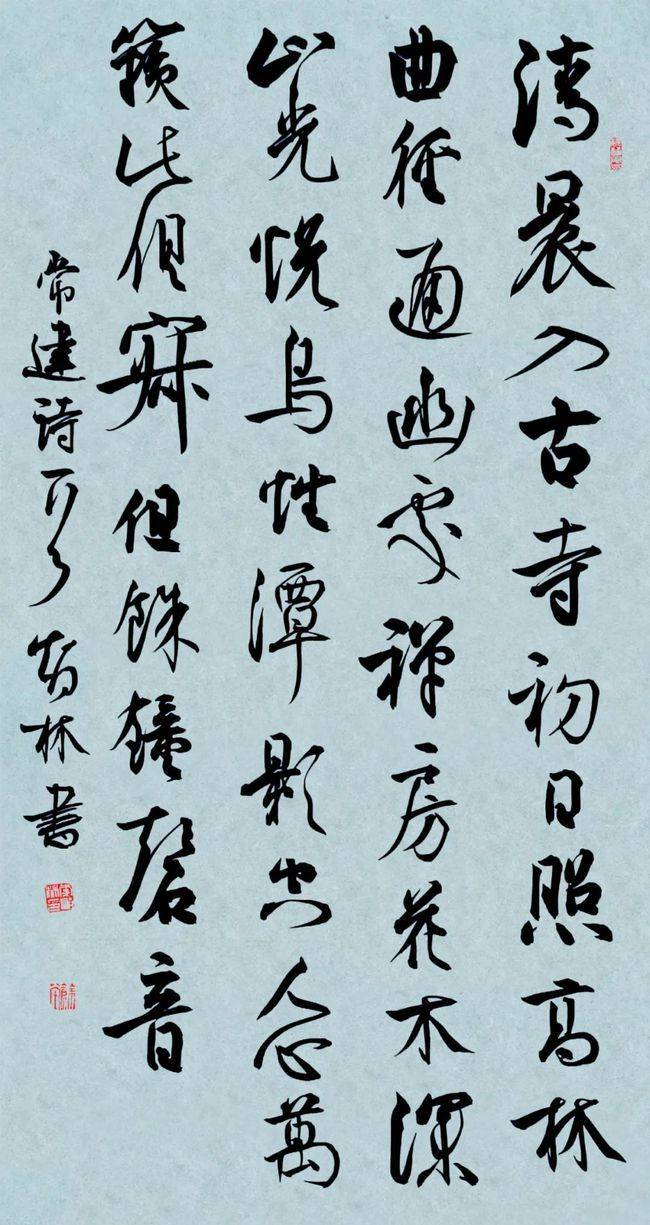 清晨入古寺初日照高林
曲徑通幽處禪房花木深
山光悦鳥性潭影空人心萬
籟此俱寂但餘鐘磬音
常建詩一首 林書